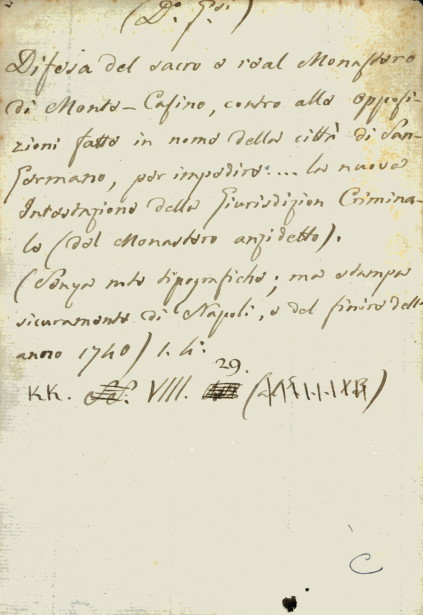 (D.º G.si)
Difesa del sacro e real Monastero
di Monte-Casino, contro alle opposi-
zioni fatte in nome della città di San-
Germano, per impedire.... la nuova
Intestazione della Giurisdizion Crimina-
le (del Monastero anzidetto).
(Senza note tipografiche; ma stampa
sicuramente di Napoli, e del finire dell'
anno 1740) 1. 4º.
29.
KK. VIII.
C